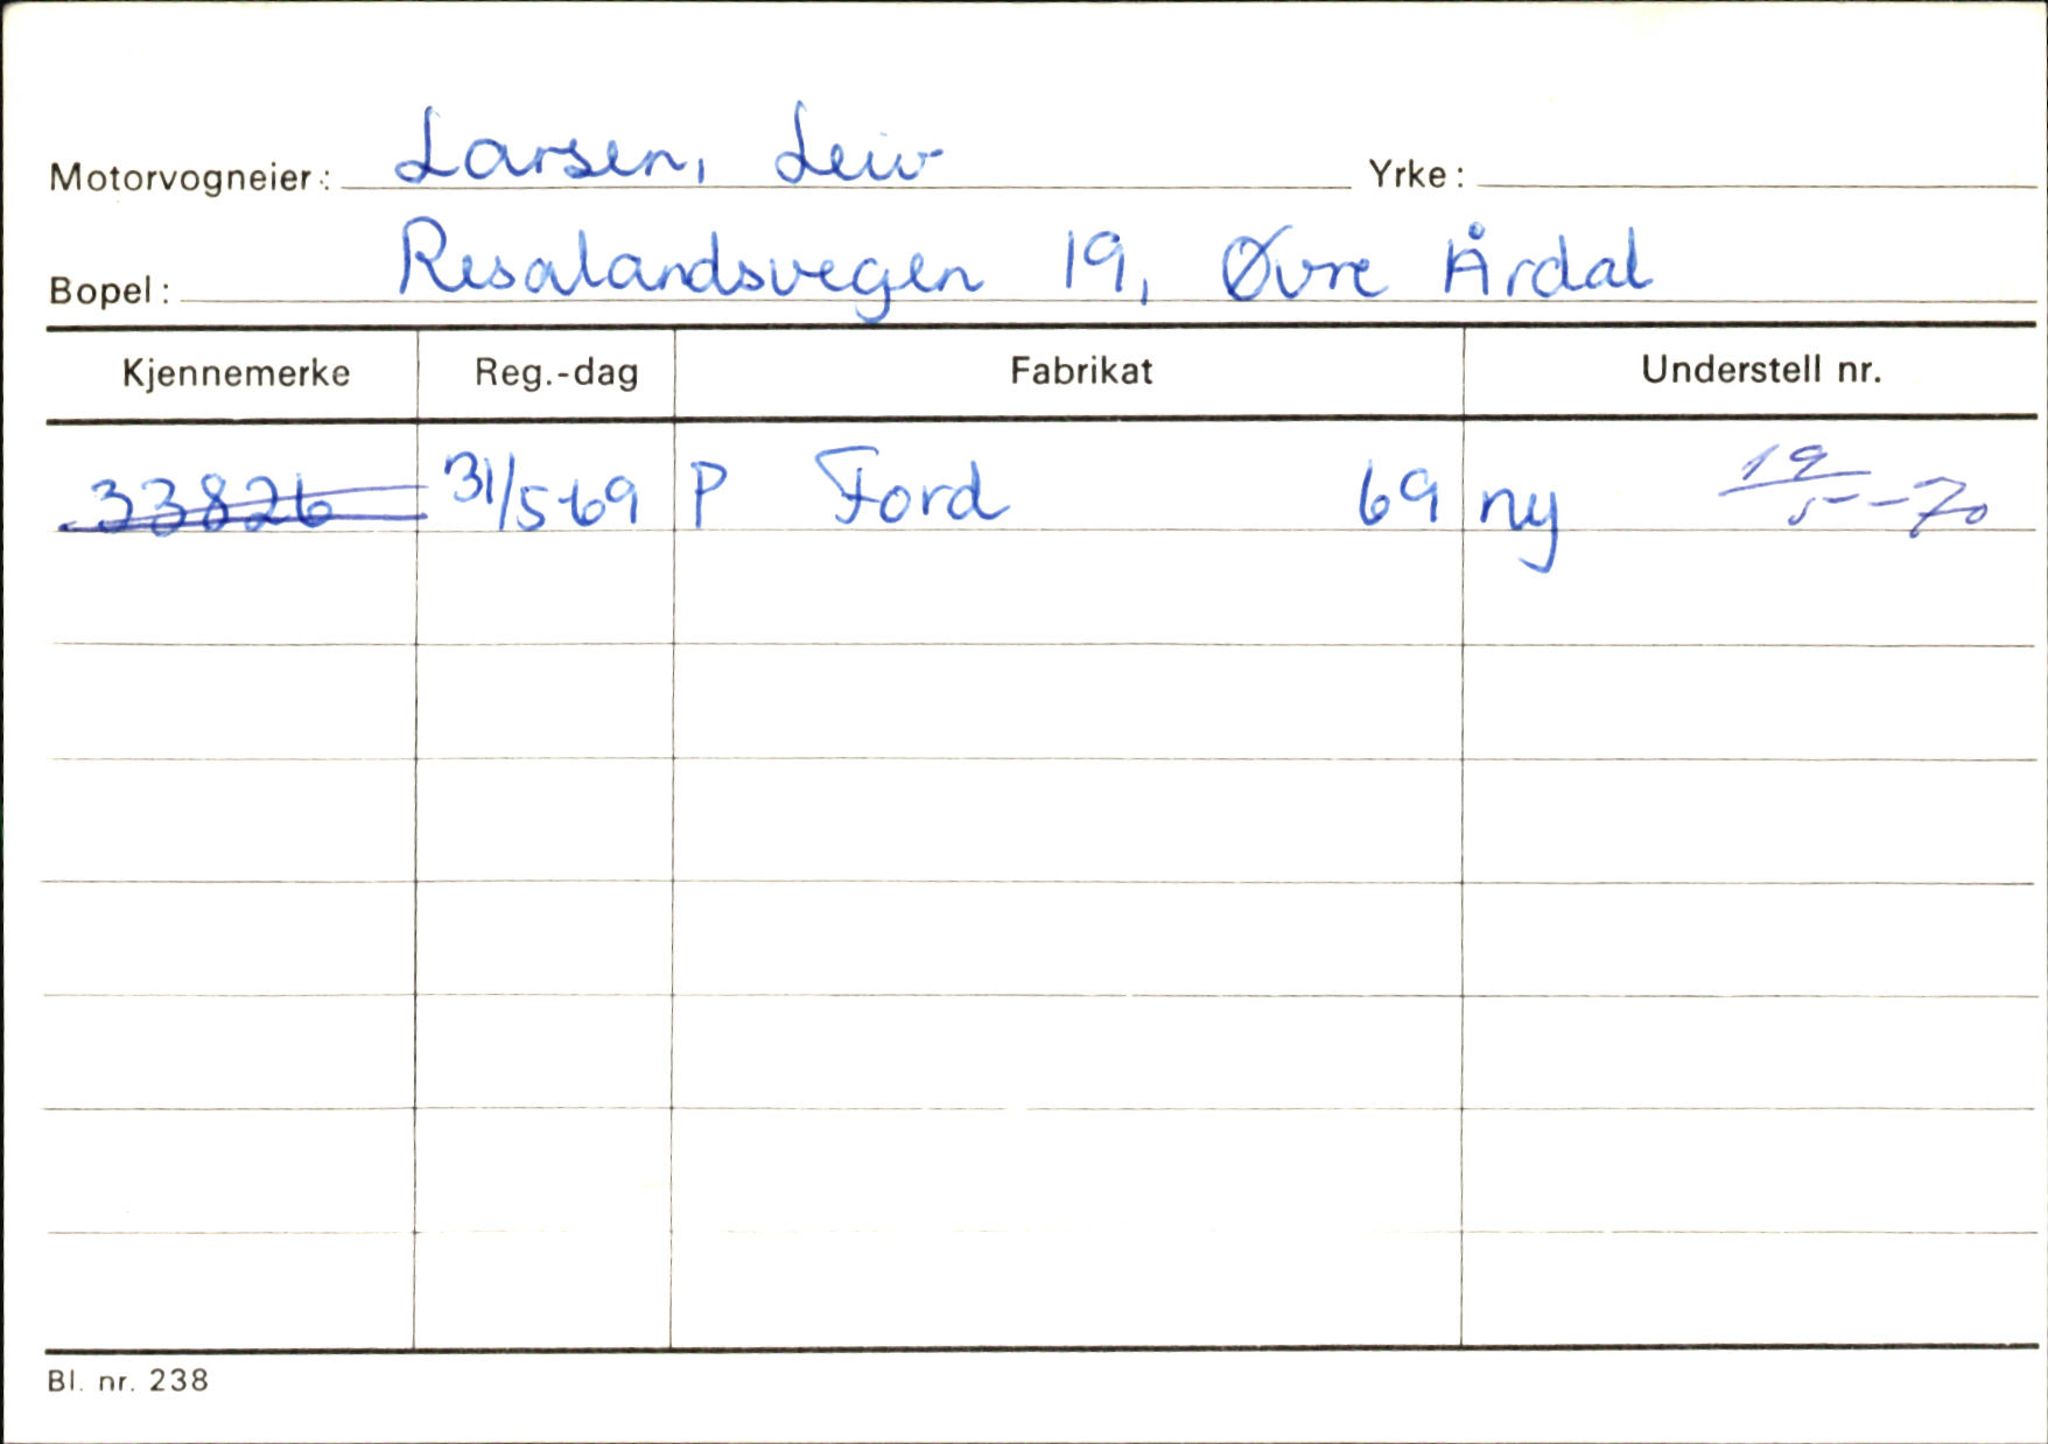 Motorvogneier: Larsen, Leiv Yrke:
Bopel: Resalandsvegen 19, Øvre Årdal
Kjennemerke Reg.-dag Fabrikat Understell nr.
33826 31/5-69 P Ford 69 ny 19/5-70
Bl. nr. 238